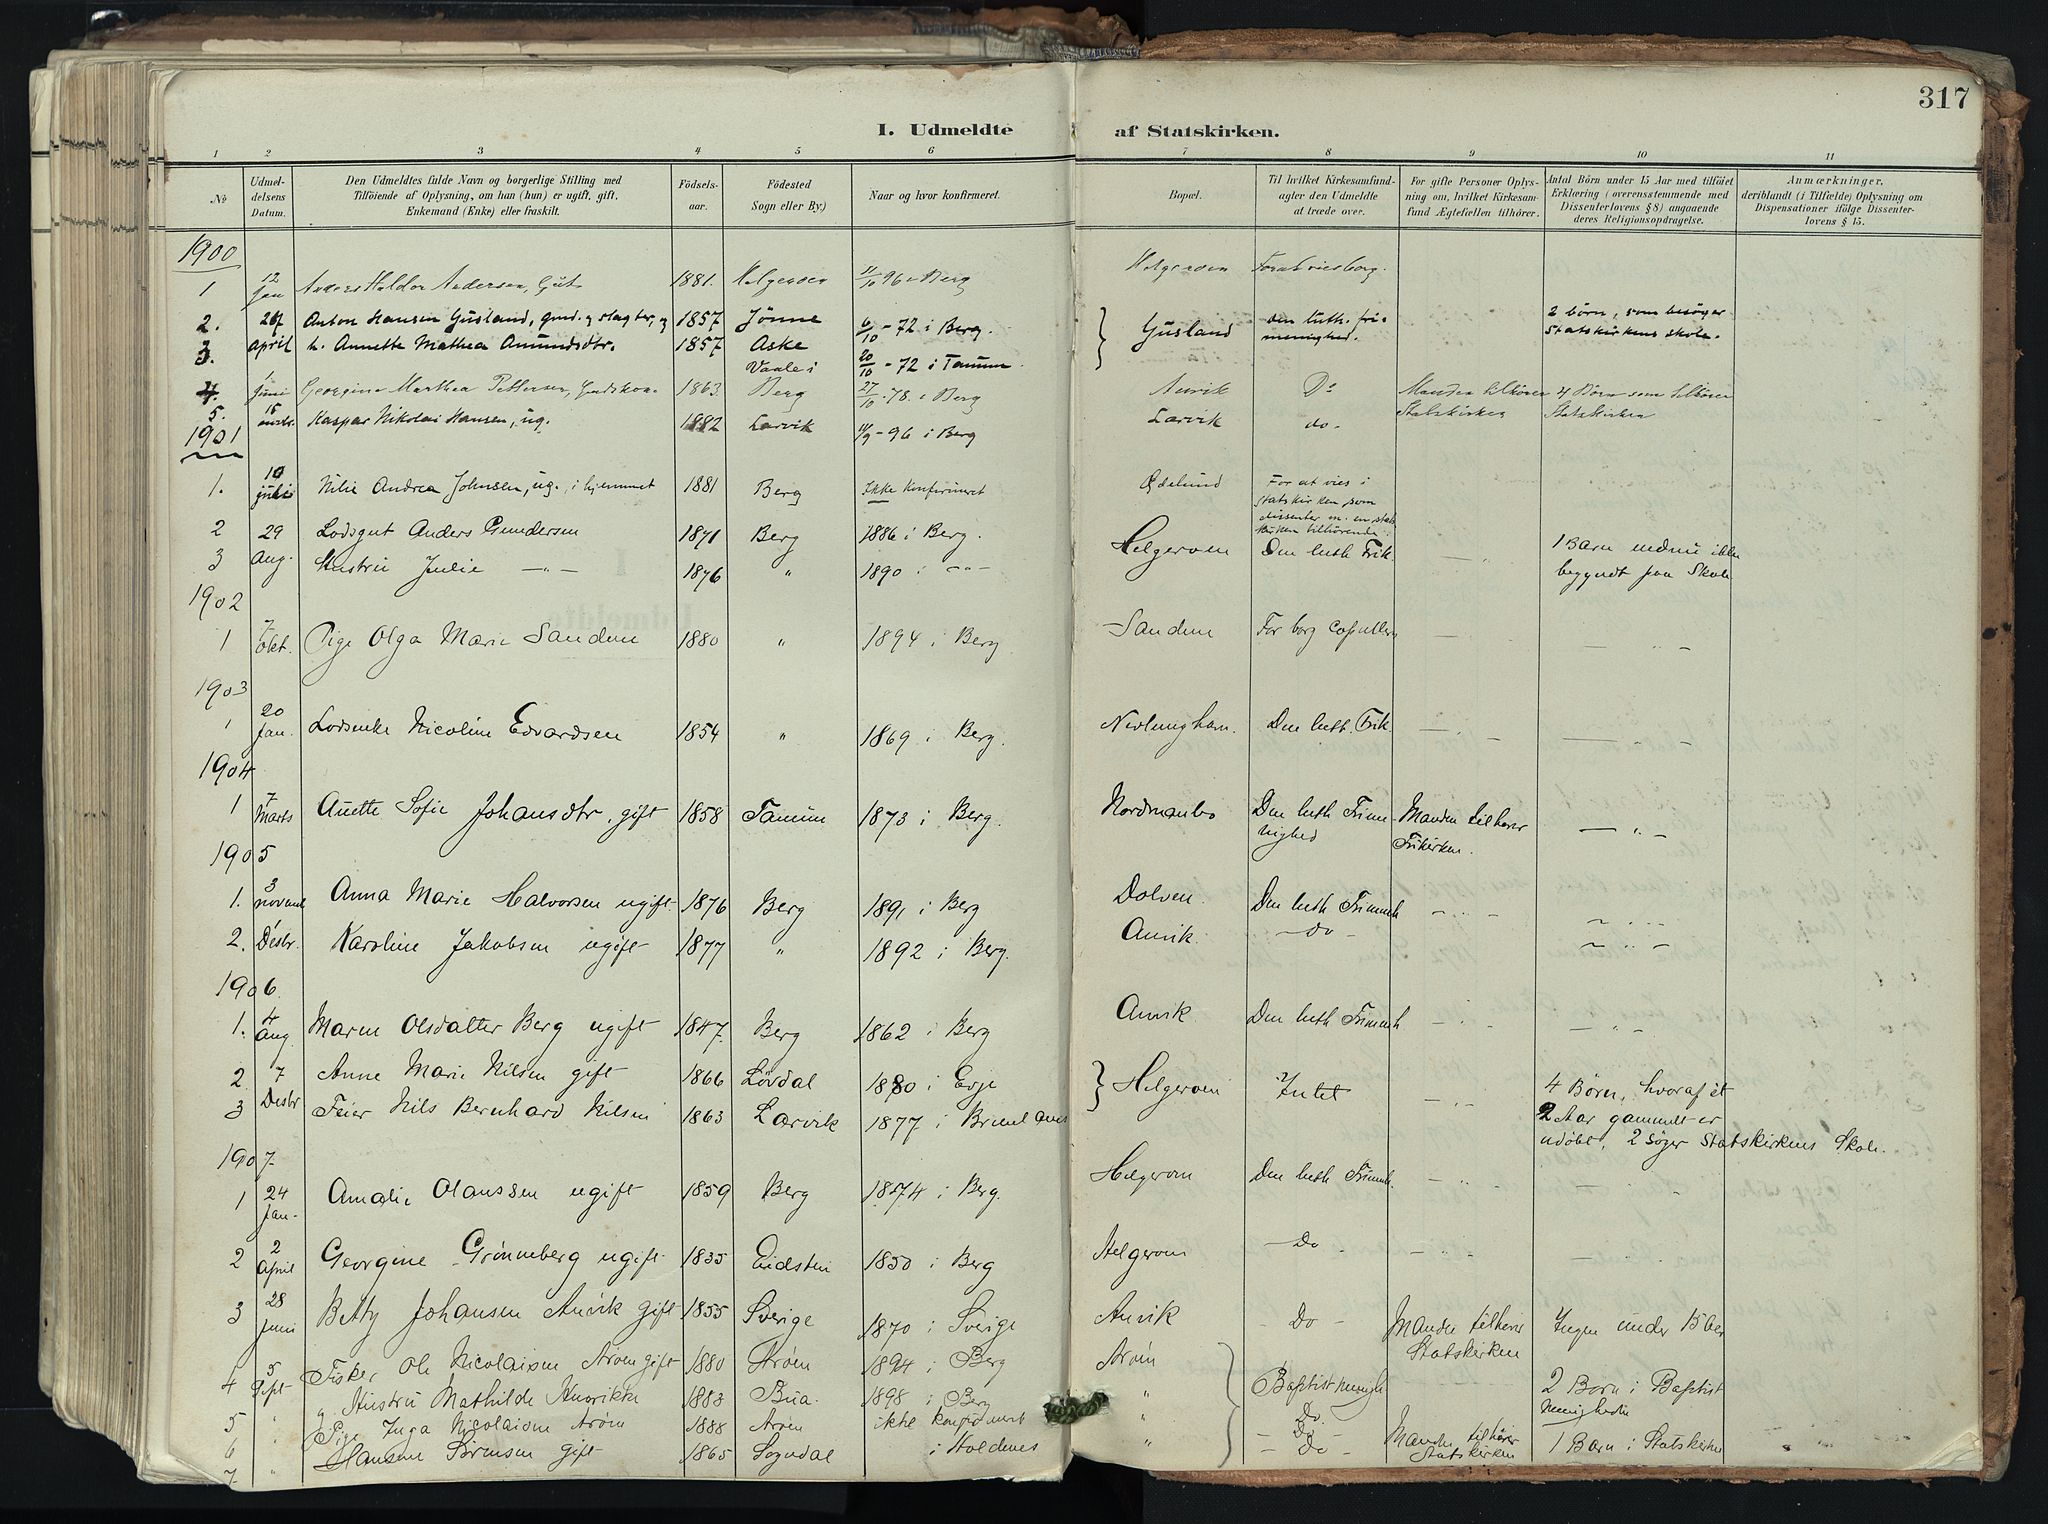 317
I. Udmeldte af Statskirken.
1 2 3 4 5 6 7 8 9 10 11
No
Udmel-
delsens
Datum.
Den Udmeldtes fulde Navn og borgerlige Stilling med
Tilföiende af Oplysning, om han (hun) er ugift, gift,
Enkemand (Enke) eller fraskilt.
Födsels-
aar.
Födested
Sogn eller By.)
Naar og hvor konfirmeret.
Bopæl.
Til hvilket Kirkesamfund-
agter den Udmeldte
at træde over.
For gifte Personer Oplys-
ning om, hvilket Kirkesam-
fund Ægtefællen tilhörer.
Antal Börn under 15 Aar med tilföiet
Erklæring (overensstemmende med
Dissenterlovens § 8) angaaende
deres Religionsopdragelse.
Anmærkninger,
deriblandt (i Tilfælde) Oplysning om
Dispensationer ifölge Dissenter-
lovens § 15.
1900
1 12 Jan Anders Haldor Andersen, Gut 1881. Helgeroen 11/10 96 i Berg Helgeroen For at vies borg.
2. 26 Anton Hansen Gusland, gmd. og slagter, og 1857 Jönne 6/10 - 72 i Berg. Gusland den luth. fri- 2 börn, som besöger
3. april h. Annette Mathea Amundsdtr. 1857 Aske 20/10 - 72 i Tanum menighed. Statskirkens skole.
4. 1 Juni Georgine Marthea Pettersen, Gmdskone 1863 Vaale i Berg 27/10 - 78 i Berg Anvik Do Manden tilhörer Statskirken 4 Börn som tilhörer Statskirken
5. 15 Kaspar Nikolai Hansen, ug. 1882 Larvik 11/9 - 96 i Berg Larvik do.
1901
1. 10 juli Nilie Andrea Johnsen, ug., i hjemmet 1881 Berg Ikke konfirmeret Ødelund For at vies i
statskirken, som
dissenter m. en stats-
kirken tilhörende.
2 29 Lodsgut Anders Gundersen 1871 Berg 1886 i Berg. Helgeroen Den luth Frik. 1 Barn endnu ikke
3 Aug. Hustru Julie -"- 1876 " 1890 i -"- begyndt paa Skole
1902
1 7 Okt. Pige Olga Marie Sanden 1880 " 1894 i Berg Sanden For borg Copullern - " -
1903
1 20 Jan. Lodsenke Nicoline Edvardsen 1854 " 1869 i Berg. Nevlunghavn. Den luth. Frik. - " - - " -
1904
1 7 Marts Anette Sofie Johansdtr. gift 1858 Tanum 1873 i Berg. Nordmanbo Den luth Frime- Manden tilhører - " -
nighed Frikirken.
1905
1. 3 novemb Anna Marie Halvorsen ugift. 1876 Berg 1891 i Berg Dolven. Den luth Frimenh - " -
2. 1 Desbr. Karoline Jakobsen ugift 1877 " 1892 i Berg. Anvik. - do - - " -
1906
1. 4 Aug. Maren Olsdatter Berg ugift 1847. Berg 1862 i Berg Anvik Den luth Frimenh - " - - " -
2 7 Anne Marie Nilsen gift 1866 Løvdal 1880 i Evje Helgeroen Intet - " - 4 Børn, hvoraf ét
3 Desbr Feier Nils Bernhard Nilsen 1863 Larvik 1877 i Brunlanes 2 Aar gammelt er
udøbt, 2 søger Statskirkens Skole.
1907.
1 24 Jan. Amalie Olaussen ugift 1859 Berg 1874 i Berg. Helgeroen Den luth Frimenh. - " -
2 2 April Georgine Grønneberg ugift 1835 Eidsten 1850 i Berg Helgeroen - Do - " -
3 28 Juni Betty Johansen Anvik gift 1855 Sverige 1870 i Sverige Anvik - Do - Manden tilhører Ingen under 15 aar
Statskirken
4 5 Sept Fisker Ole Nicolaisen Arøen gift 1880 Arøen 1894 i Berg Arøen Baptist menigh 2 Børn i Baptist
5 " " Hustru Mathilde Henrikke 1883 Bua. 1898 i Berg " Do. Menigheden
6 " Pige Inga Nicolaisen Arøen 1888 Arøen ikke konfirmeret " - Do -
7. " Hansine Sørensen gift 1865 Sogndal i Holdenes " - Do - Manden tilhører 1 Barn i Statskirken
Statskirken